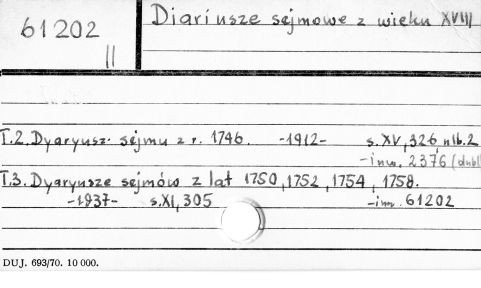 61202
II
Diariusze sejmowe z wieku XVIII
T.2. Dyaryusz sejmu z r. 1746. -1912- s.XV,326,nlb.2
-inw. 2376 (dubl
T.3. Dyaryusze sejmów z lat 1750,1752,1754,1758.
-1937- s.XI,305 -inw. 61202
DUJ. 693/70. 10 000.